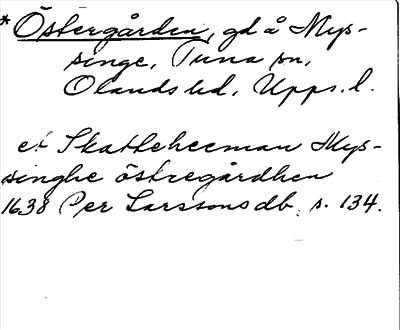 * Östergården, gd å Mys-
singe, Tuna sn,
Olands hd, Upps. l.
et Skatteheeman Mys-
singhe östregårdhen
1638 Per Larssons db. s. 134.